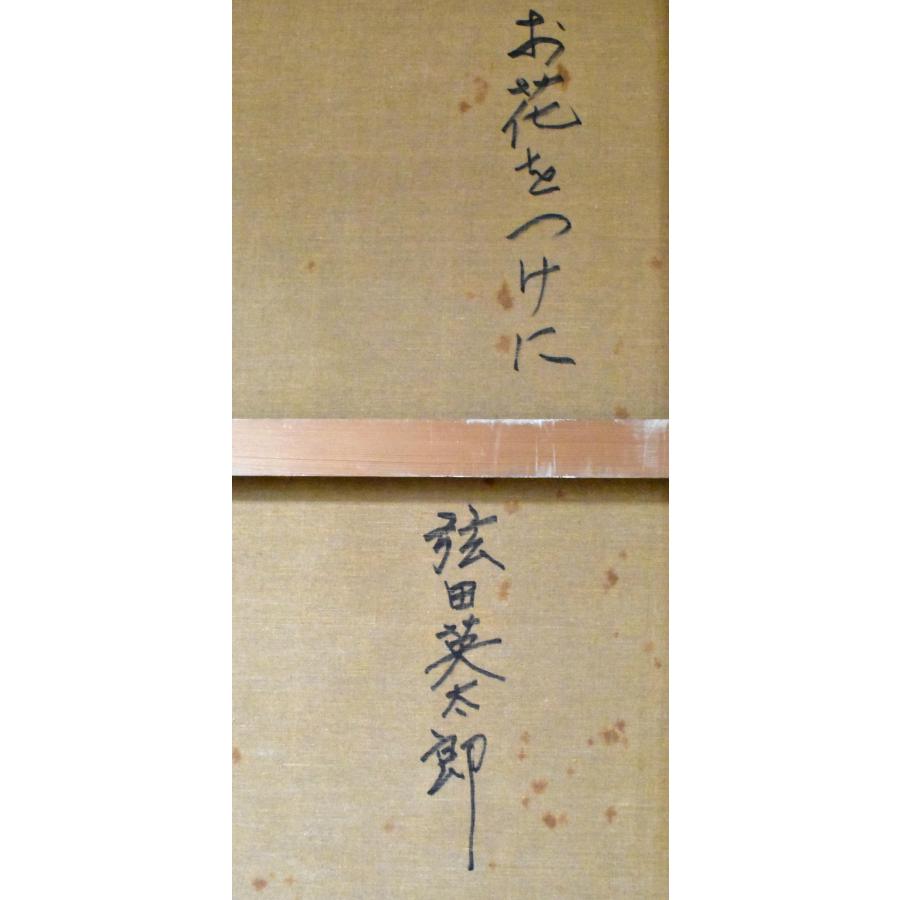 お花をつけに
弦田英太郎